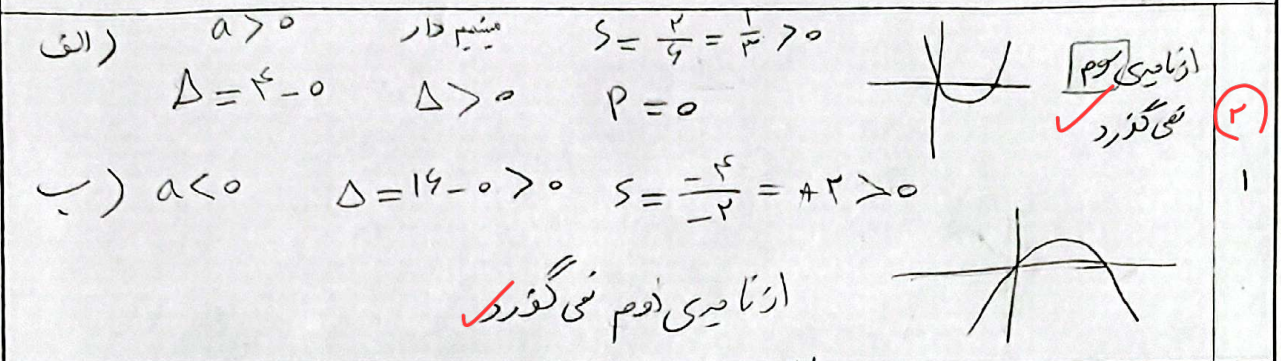 الف) a > ۰ مینیمم دار S = ۲/۶ = ۱/۳ > ۰
Δ = ۴ - ۰ Δ > ۰ P = ۰
از ناحیه‌ی سوم
نمی گذرد
۲
۱
ب) a < ۰ Δ = ۱۶ - ۰ > ۰ S = -۴/-۲ = +۲ > ۰
از ناحیه‌ی دوم نمی گذرد